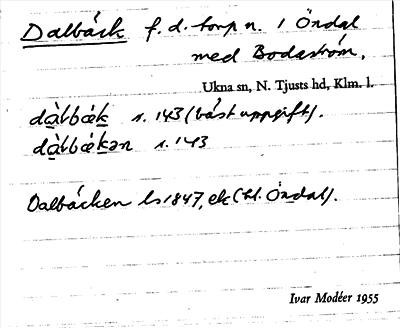 Dalbäck f. d. torp n. 1 Öndal
med Bodaström.
Ukna sn, N. Tjusts hd, Klm. l.
dàlbæk s. 143 (bäst uppgift).
dàlbækən s. 143
Dalbäcken ls 1847, ek (bl. Öndal).
Ivar Modéer 1955